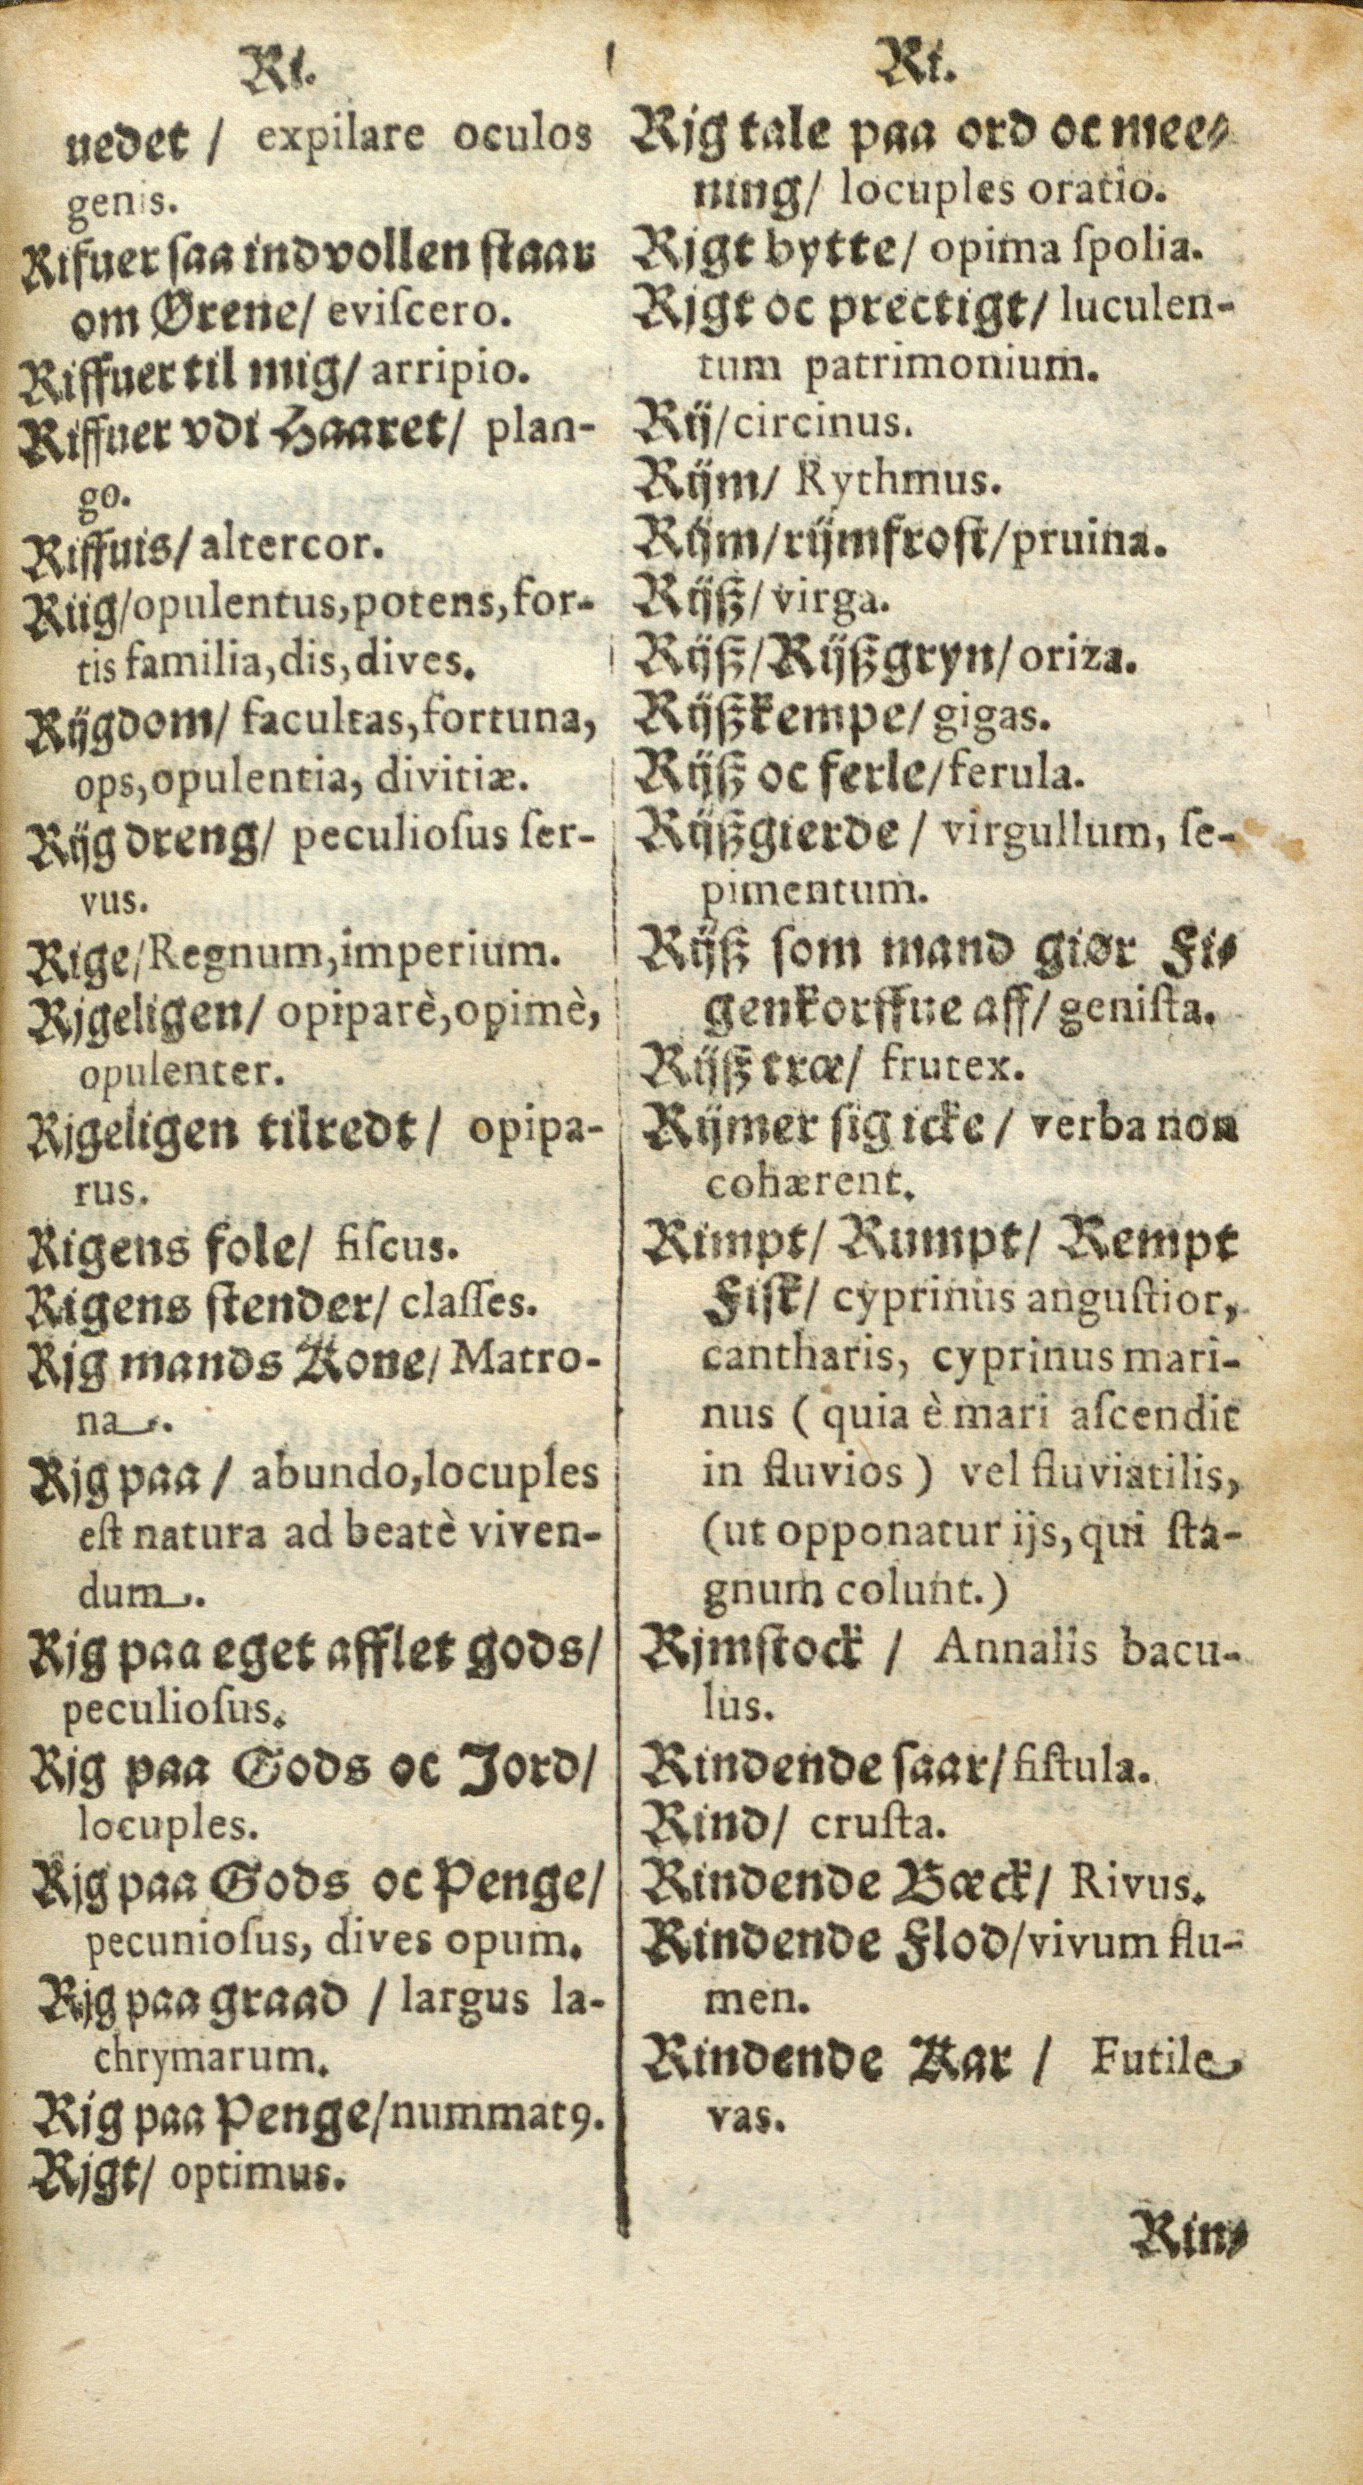 Ri.
uedet / expilare oculos
genis.
Rifuer ſaa indvollen ſtaar
om Ørene/ eviſcero.
Riffuer til mig/ arripio.
Riffuer vdi Haaret/ plan-
go.
Riffuis/ altercor.
Riig/opulentus,potens,for-
tis familia,dis,dives.
Rijgdom/ facultas,fortuna,
ops,opulentia, divitiæ.
Rijg dreng/ peculioſus ſer-
vus.
Rige/Regnum,imperium.
Rjgeligen/ opiparè,opimè,
opulenter.
Rjgeligen tilredt/ opipa-
rus.
Rigens fole/ fiſcus.
Rigens ſtender/ claſſes.
Rjg mands Kone/ Matro-
na.
Rjg paa / abundo,locuples
eſt natura ad beatè viven-
dum.
Rjg paa eget afflet gods/
peculioſus.
Rjg paa Gods oc Jord/
locuples.
Rjg paa Gods oc Penge/
pecunioſus, dives opum.
Rjg paa graad / largus la-
chrymarum.
Rjg paa Penge/nummat9.
Rjgt/ optimus.
Ri.
Rjg tale paa ord oc mee-
ning/ locuples oratio.
Rjgt bytte/ opima ſpolia.
Rjgt oc prectigt/ luculen-
tum patrimonium.
Rij/circinus.
Rijm/ Rythmus.
Rijm/rijmfroſt/pruina.
Rijß/ virga.
Rijß/Rijßgryn/oriza.
Rijßkempe/ gigas.
Rijß oc ferle/ferula.
Rijßgierde / virgullum, ſe-
pimentum.
Rijß ſom mand giør Fi-
genkorffue aff/ geniſta.
Rijß træ/ frutex.
Rijmer ſig icke/ verba non
cohærent.
Rimpt/ Rumpt/ Rempt
Fiſk/ cyprinus anguſtior,
cantharis, cyprinus mari-
nus ( quia è mari aſcendit
in fluvios ) vel fluviatilis,
(ut opponatur ijs, qui ſta-
gnum colunt.)
Rjmſtock / Annalis bacu-
lus.
Rindende ſaar/ fiſtula.
Rind/ cruſta.
Rindende Bæck/ Rivus.
Rindende Flod/vivum flu-
men.
Rindende Kar / Futile
vas.
Rin-